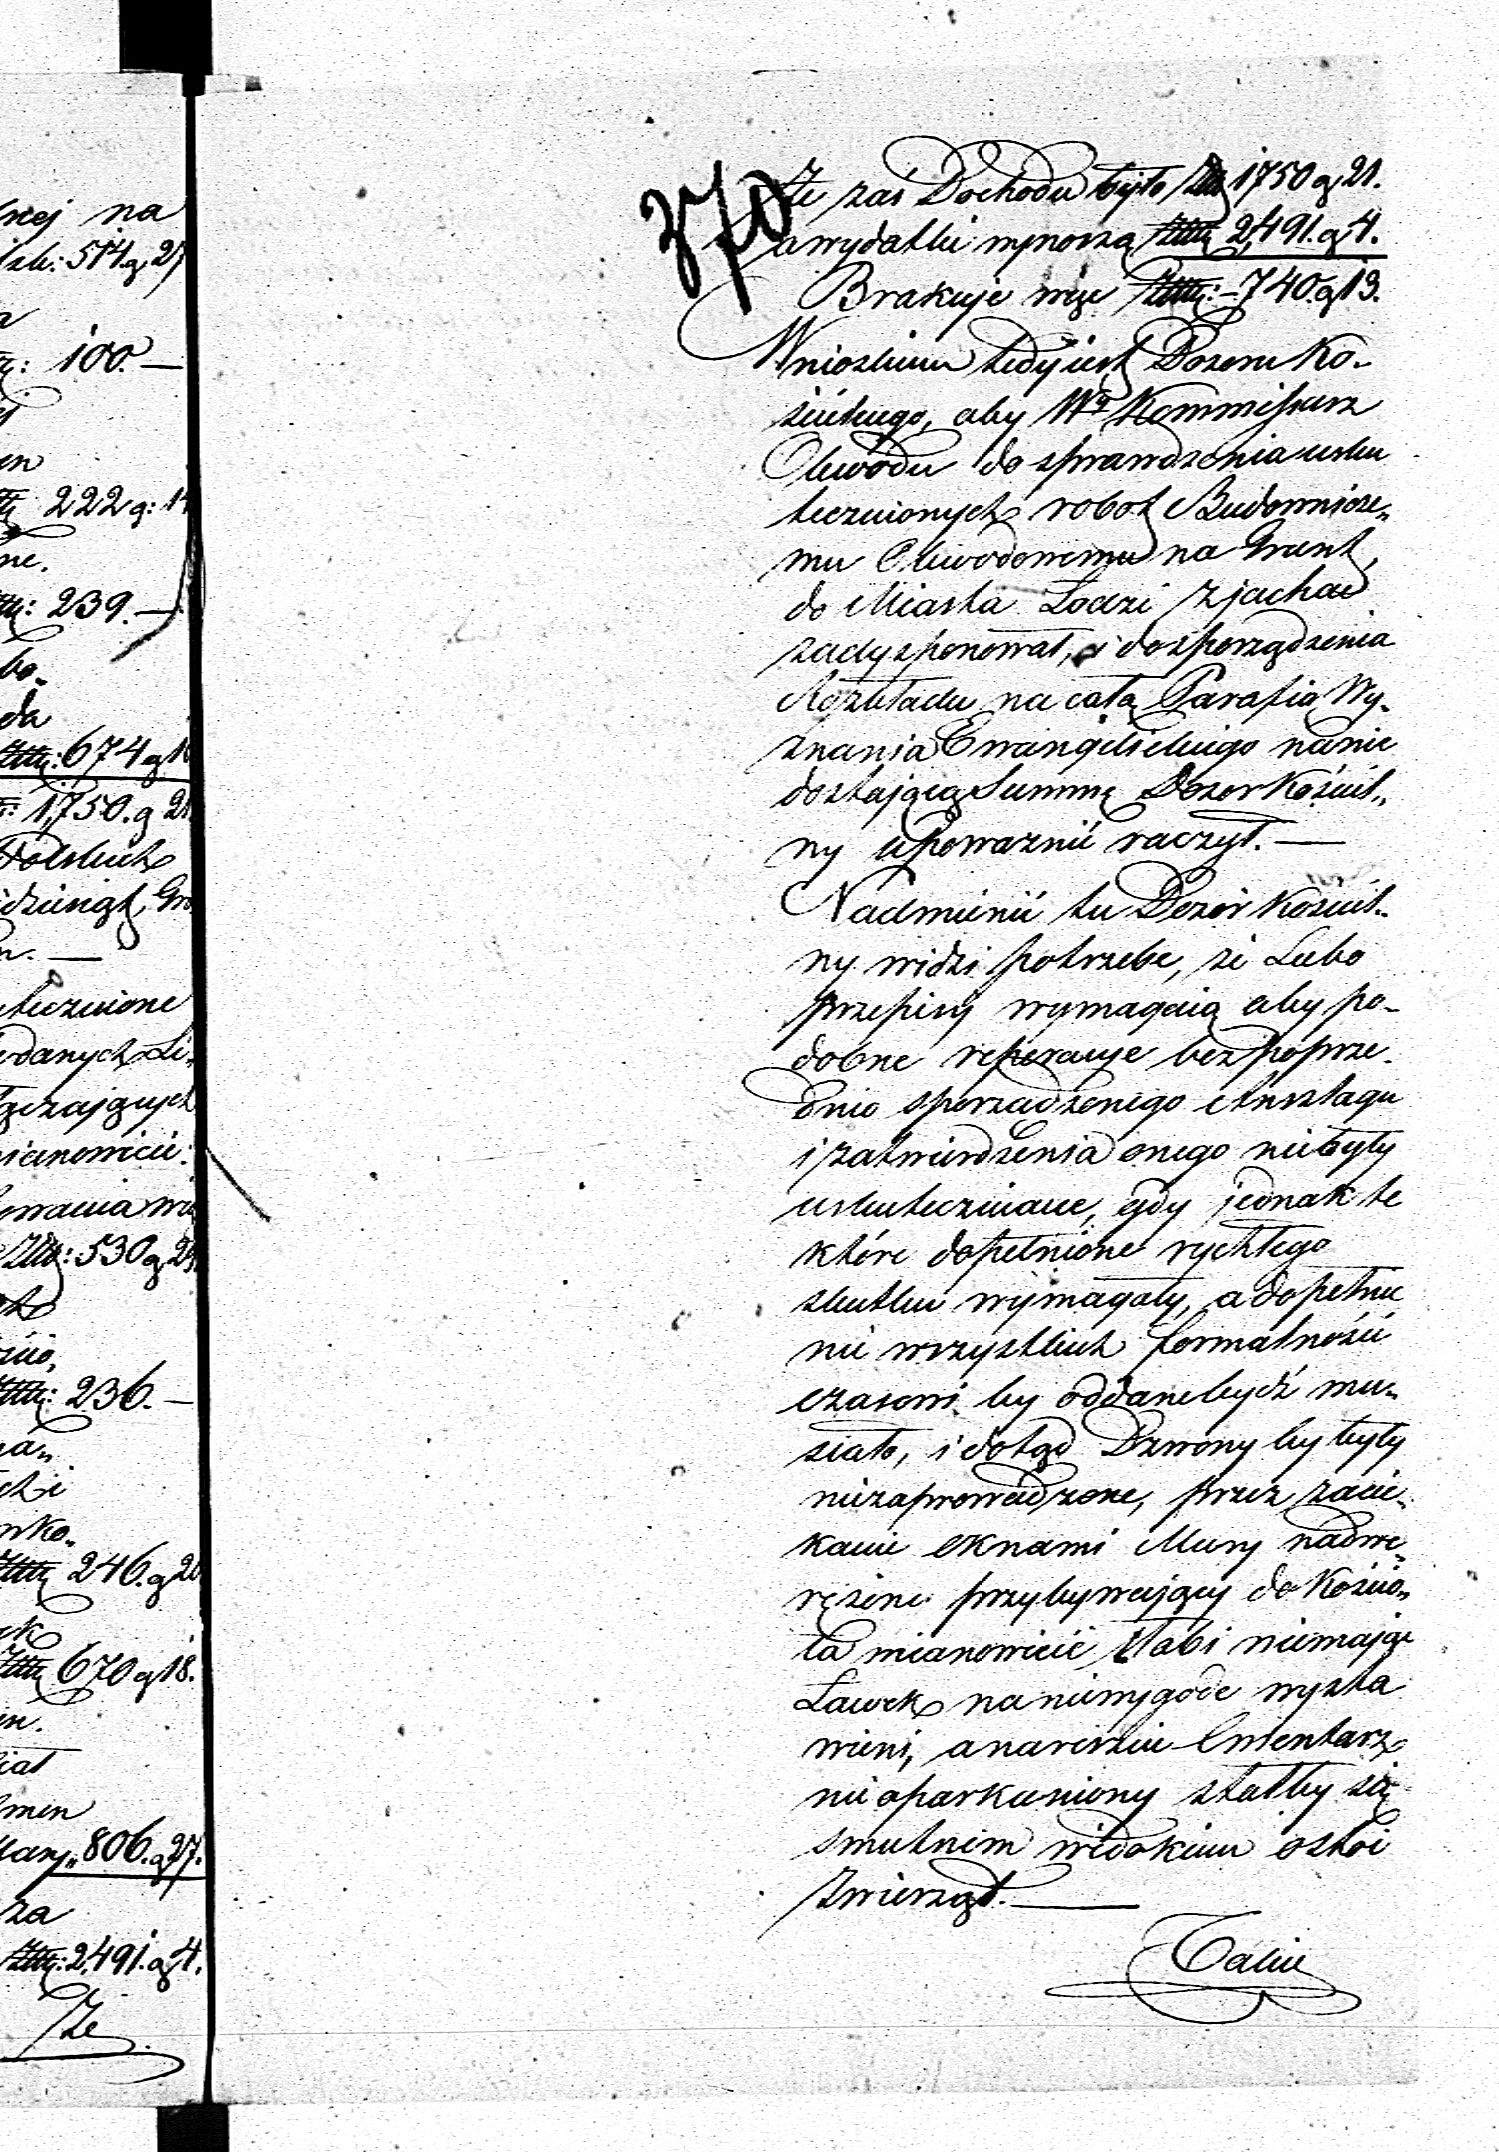 nej na
514. g 27
100. —
222 g: 14
ne.
239. —
bo„
da
674 g 1
1,750. g 21
Polskich
dziesiąt, Gro
n. —
tecznione
danych Li„
łączających
mianowicie:
owania
530 g 2
236. —
an„
ch i
nko„
246. g 20
670 g 18.
en.
iał
men
806. g 27.
za
2,491. g 4.
Że
370
Że zaś Dochodu było Złł 1750 g 21.
a wydatki wynoszą Złł 2,491. g 4.
Brakuje więc Złł: - 740. g 13.
Wnioskiem tedy iest Dozoru Ko-
ścielnego, aby Wy Kommissarz
Obwodu do sprawdzenia usku
tecznionych robot Budownicze„
mu Obwodowemu na Grunt,
do Miasta Łodzi zjachać
zadysponował, i do sporządzenia
Rozkładu na całą Parafią Wy-
znania Ewangelickiego na nie
dostającą Summę Dozor Kościel„
ny upoważnić raczył. —
Nadmienić tu Dozór Kościel„
ny widzi potrzebe, że Lubo
przepisy wymagaią aby po-
dobne reperacye bez poprze-
dnio sporzadzonego Anszlagu
i zatwierdzenia onego niebyły
uskuteczniane, gdy jednak te
które dopełnione rychłego
skutku wymagały, a dopełnie
nie wszystkich formalności
czasowi by oddane bydź mu„
siało, i dotąd Dzwony by były
niezaprowadzone, przez zacie-
kanie oknami Mury nadwe„
rężone przybywający do Kościo„
ła mianowicie słabi niemając
Ławek na niewygode wysta
wieni, a nareszcie Cmentarz
nieoparkaniony stałby się
smutnem widokiem ostoi
zwierząt. —
Takie